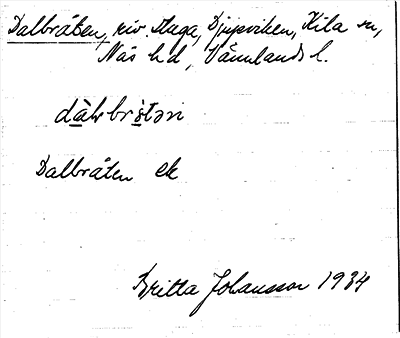 Dalbråten, riv. stuga, Djupviken, Kila sn,
Näs hd, Värmlands l.
dàlvbrǫ̀tǝn
Dalbråten ek
Britta Johansson 1934